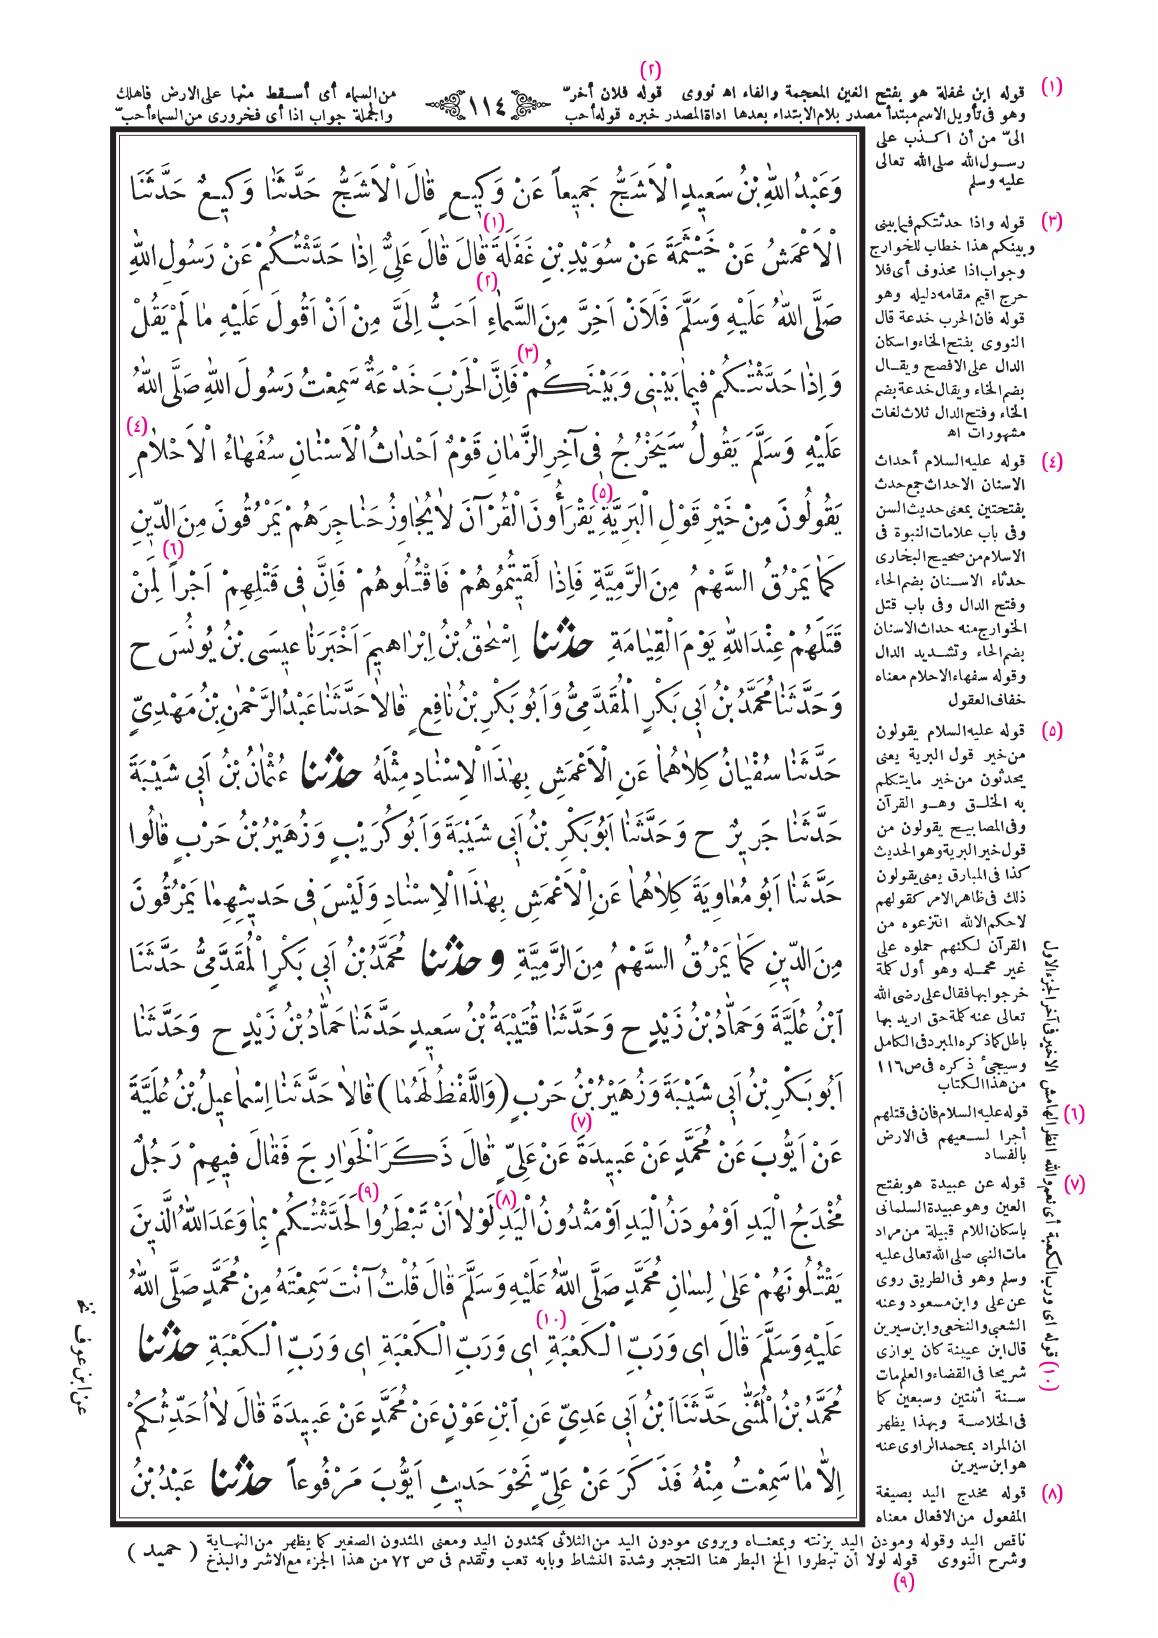 (٢)
(١) قوله ابن غفلة هو بفتح الغين المعجمة والفاء اه نووى قوله فلان أخرّ
وهو فى تأويل الاسم مبتدأ مصدر بلام الابتداء بعدها اداة المصدر خبره قوله أحب
١١٤
من السماء أى أسقط منها على الارض فاهلك
والجملة جواب اذا أى فخرورى من السماء أحبّ
الىّ من أن اكذب على
رسول الله صلى الله تعالى
عليه وسلم
(٣) قوله واذا حدثتكم فيما بينى
وبينكم هذا خطاب للخوارج
وجواب اذا محذوف أى فلا
حرج اقيم مقامه دليله وهو
قوله فان الحرب خدعة قال
النووى بفتح الخاء واسكان
الدال على الافصح ويقال
بضم الخاء ويقال خدعة بضم
الخاء وفتح الدال ثلاث لغات
مشهورات اه
(٤) قوله عليه السلام أحداث
الاسنان الاحداث جمع حدث
بفتحتين بمعنى حديث السن
وفى باب علامات النبوة فى
الاسلام من صحيح البخارى
حدثاء الاسنان بضم الحاء
وفتح الدال وفى باب قتل
الخوارج منه حداث الاسنان
بضم الحاء وتشديد الدال
وقوله سفهاء الاحلام معناه
خفاف العقول
(٥) قوله عليه السلام يقولون
من خير قول البرية يعنى
يحدثون من خير مايتكلم
به الخلق وهو القرآن
وفى المصابيح يقولون من
قول خير البرية وهو الحديث
كذا فى المبارق يعنى يقولون
ذلك فى ظاهر الامر كقولهم
لاحكم الالله انتزعوه من
القرآن لكنهم حملوه على
غير محمله وهو أول كلمة
خرجوا بها فقال على رضى الله
تعالى عنه كلمة حق اريد بها
باطل كما ذكره المبرد فى الكامل
وسيجىٔ ذكره فى ص ١١٦
من هذا الكتاب
(٦) قوله عليه السلام فان فى قتلهم
أجرا لسعيهم فى الارض
بالفساد
(٧) قوله عن عبيدة هو بفتح
العين وهو عبيدة السلمانى
باسكان اللام قبيلة من مراد
مات النبى صلى الله تعالى عليه
وسلم وهو فى الطريق روى
عن على وابن مسعود وعنه
الشعبى والنخعى وابن سيرين
قال ابن عيينة كان يوازى
شريحا فى القضاء والعلم مات
سنة اثنتين وسبعين كما
فى الخلاصة وبهذا يظهر
ان المراد بمحمد الراوى عنه
هو ابن سيرين
(٨) قوله مخدج اليد بصيغة
المفعول من الافعال معناه
(١٠) قوله اى ورب الكعبة أى نعم والله انظر الهامش الاخير فى آخر الجزء الاول
وَعَبْدُ اللهِ بْنُ سَعِيدٍ الْاَشَجُّ جَمِيعاً عَنْ وَكِيعٍ قَالَ الْاَشَجُّ حَدَّثَنَا وَكِيعٌ حَدَّثَنَا
(١)
الْاَعْمَشُ عَنْ خَيْثَمَةَ عَنْ سُوَيْدِ بْنِ غَفَلَةَ قَالَ قَالَ عَلِيٌّ اِذَا حَدَّثْتُكُمْ عَنْ رَسُولِ اللهِ
(٢)
صَلَّى اللهُ عَلَيْهِ وَسَلَّمَ فَلَاَنْ اَخِرَّ مِنَ السَّمَاءِ اَحَبُّ اِلَيَّ مِنْ اَنْ اَقُولَ عَلَيْهِ مَا لَمْ يَقُلْ
(٣)
وَاِذَا حَدَّثْتُكُمْ فِيمَا بَيْنِى وَبَيْنَكُمْ فَاِنَّ الْحَرْبَ خَدْعَةٌ سَمِعْتُ رَسُولَ اللهِ صَلَّى اللهُ
(٤)
عَلَيْهِ وَسَلَّمَ يَقُولُ سَيَخْرُجُ فِى آخِرِ الزَّمَانِ قَوْمٌ اَحْدَاثُ الْاَسْنَانِ سُفَهَاءُ الْاَحْلَامِ
(٥)
يَقُولُونَ مِنْ خَيْرِ قَوْلِ الْبَرِيَّةِ يَقْرَأُونَ الْقُرْآنَ لَا يُجَاوِزُ حَنَاجِرَهُمْ يَمْرُقُونَ مِنَ الدِّينِ
(٦)
كَمَا يَمْرُقُ السَّهْمُ مِنَ الرَّمِيَّةِ فَاِذَا لَقِيتُمُوهُمْ فَاقْتُلُوهُمْ فَاِنَّ فِى قَتْلِهِمْ اَجْراً لِمَنْ
قَتَلَهُمْ عِنْدَ اللهِ يَوْمَ الْقِيَامَةِ حَدَّثَنَا اِسْحٰقُ بْنُ اِبْرَاهِيمَ اَخْبَرَنَا عِيسَى بْنُ يُونُسَ ح
وَحَدَّثَنَا مُحَمَّدُ بْنُ اَبِى بَكْرٍ الْمُقَدَّمِيُّ وَاَبُو بَكْرِ بْنُ نَافِعٍ قَالَا حَدَّثَنَا عَبْدُ الرَّحْمٰنِ بْنُ مَهْدِيٍّ
حَدَّثَنَا سُفْيَانُ كِلَاهُمَا عَنِ الْاَعْمَشِ بِهٰذَا الْاِسْنَادِ مِثْلَهُ حَدَّثَنَا عُثْمَانُ بْنُ اَبِى شَيْبَةَ
حَدَّثَنَا جَرِيرٌ ح وَحَدَّثَنَا اَبُو بَكْرِ بْنُ اَبِى شَيْبَةَ وَاَبُو كُرَيْبٍ وَزُهَيْرُ بْنُ حَرْبٍ قَالُوا
حَدَّثَنَا اَبُو مُعَاوِيَةَ كِلَاهُمَا عَنِ الْاَعْمَشِ بِهٰذَا الْاِسْنَادِ وَلَيْسَ فِى حَدِيثِهِمَا يَمْرُقُونَ
مِنَ الدِّينِ كَمَا يَمْرُقُ السَّهْمُ مِنَ الرَّمِيَّةِ وحَدَّثَنَا مُحَمَّدُ بْنُ اَبِى بَكْرٍ الْمُقَدَّمِيُّ حَدَّثَنَا
ابْنُ عُلَيَّةَ وَحَمَّادُ بْنُ زَيْدٍ ح وَحَدَّثَنَا قُتَيْبَةُ بْنُ سَعِيدٍ حَدَّثَنَا حَمَّادُ بْنُ زَيْدٍ ح وَحَدَّثَنَا
اَبُو بَكْرِ بْنُ اَبِى شَيْبَةَ وَزُهَيْرُ بْنُ حَرْبٍ (وَاللَّفْظُ لَهُمَا) قَالَا حَدَّثَنَا اِسْمَاعِيلُ بْنُ عُلَيَّةَ
(٧)
عَنْ اَيُّوبَ عَنْ مُحَمَّدٍ عَنْ عَبِيدَةَ عَنْ عَلِيٍّ قَالَ ذَكَرَ الْخَوَارِجَ فَقَالَ فِيهِمْ رَجُلٌ
(٨) (٩)
مُخْدَجُ الْيَدِ اَوْ مُودَنُ الْيَدِ اَوْ مَثْدُونُ الْيَدِ لَوْلَا اَنْ تَبْطَرُوا لَحَدَّثْتُكُمْ بِمَا وَعَدَ اللهُ الَّذِينَ
يَقْتُلُونَهُمْ عَلَى لِسَانِ مُحَمَّدٍ صَلَّى اللهُ عَلَيْهِ وَسَلَّمَ قَالَ قُلْتُ آنْتَ سَمِعْتَهُ مِنْ مُحَمَّدٍ صَلَّى اللهُ
(١٠)
عَلَيْهِ وَسَلَّمَ قَالَ اِى وَرَبِّ الْكَعْبَةِ اِى وَرَبِّ الْكَعْبَةِ اِى وَرَبِّ الْكَعْبَةِ حَدَّثَنَا
مُحَمَّدُ بْنُ الْمُثَنَّى حَدَّثَنَا ابْنُ اَبِى عَدِيٍّ عَنِ ابْنِ عَوْنٍ عَنْ مُحَمَّدٍ عَنْ عَبِيدَةَ قَالَ لَا اُحَدِّثُكُمْ
اِلَّا مَا سَمِعْتُ مِنْهُ فَذَكَرَ عَنْ عَلِيٍّ نَحْوَ حَدِيثِ اَيُّوبَ مَرْفُوعاً حَدَّثَنَا عَبْدُ بْنُ
عن ابن عوف نخ
ناقص اليد وقوله ومودن اليد بزنته وبمعناه ويروى مودون اليد من الثلاثى كمثدون اليد ومعنى المثدون الصغير كما يظهر من النهاية
وشرح النووى قوله لولا أن تبطروا الخ البطر هنا التجبر وشدة النشاط وبابه تعب وتقدم فى ص ٧٢ من هذا الجزء مع الاشر والبذخ
(حميد)
(٩)